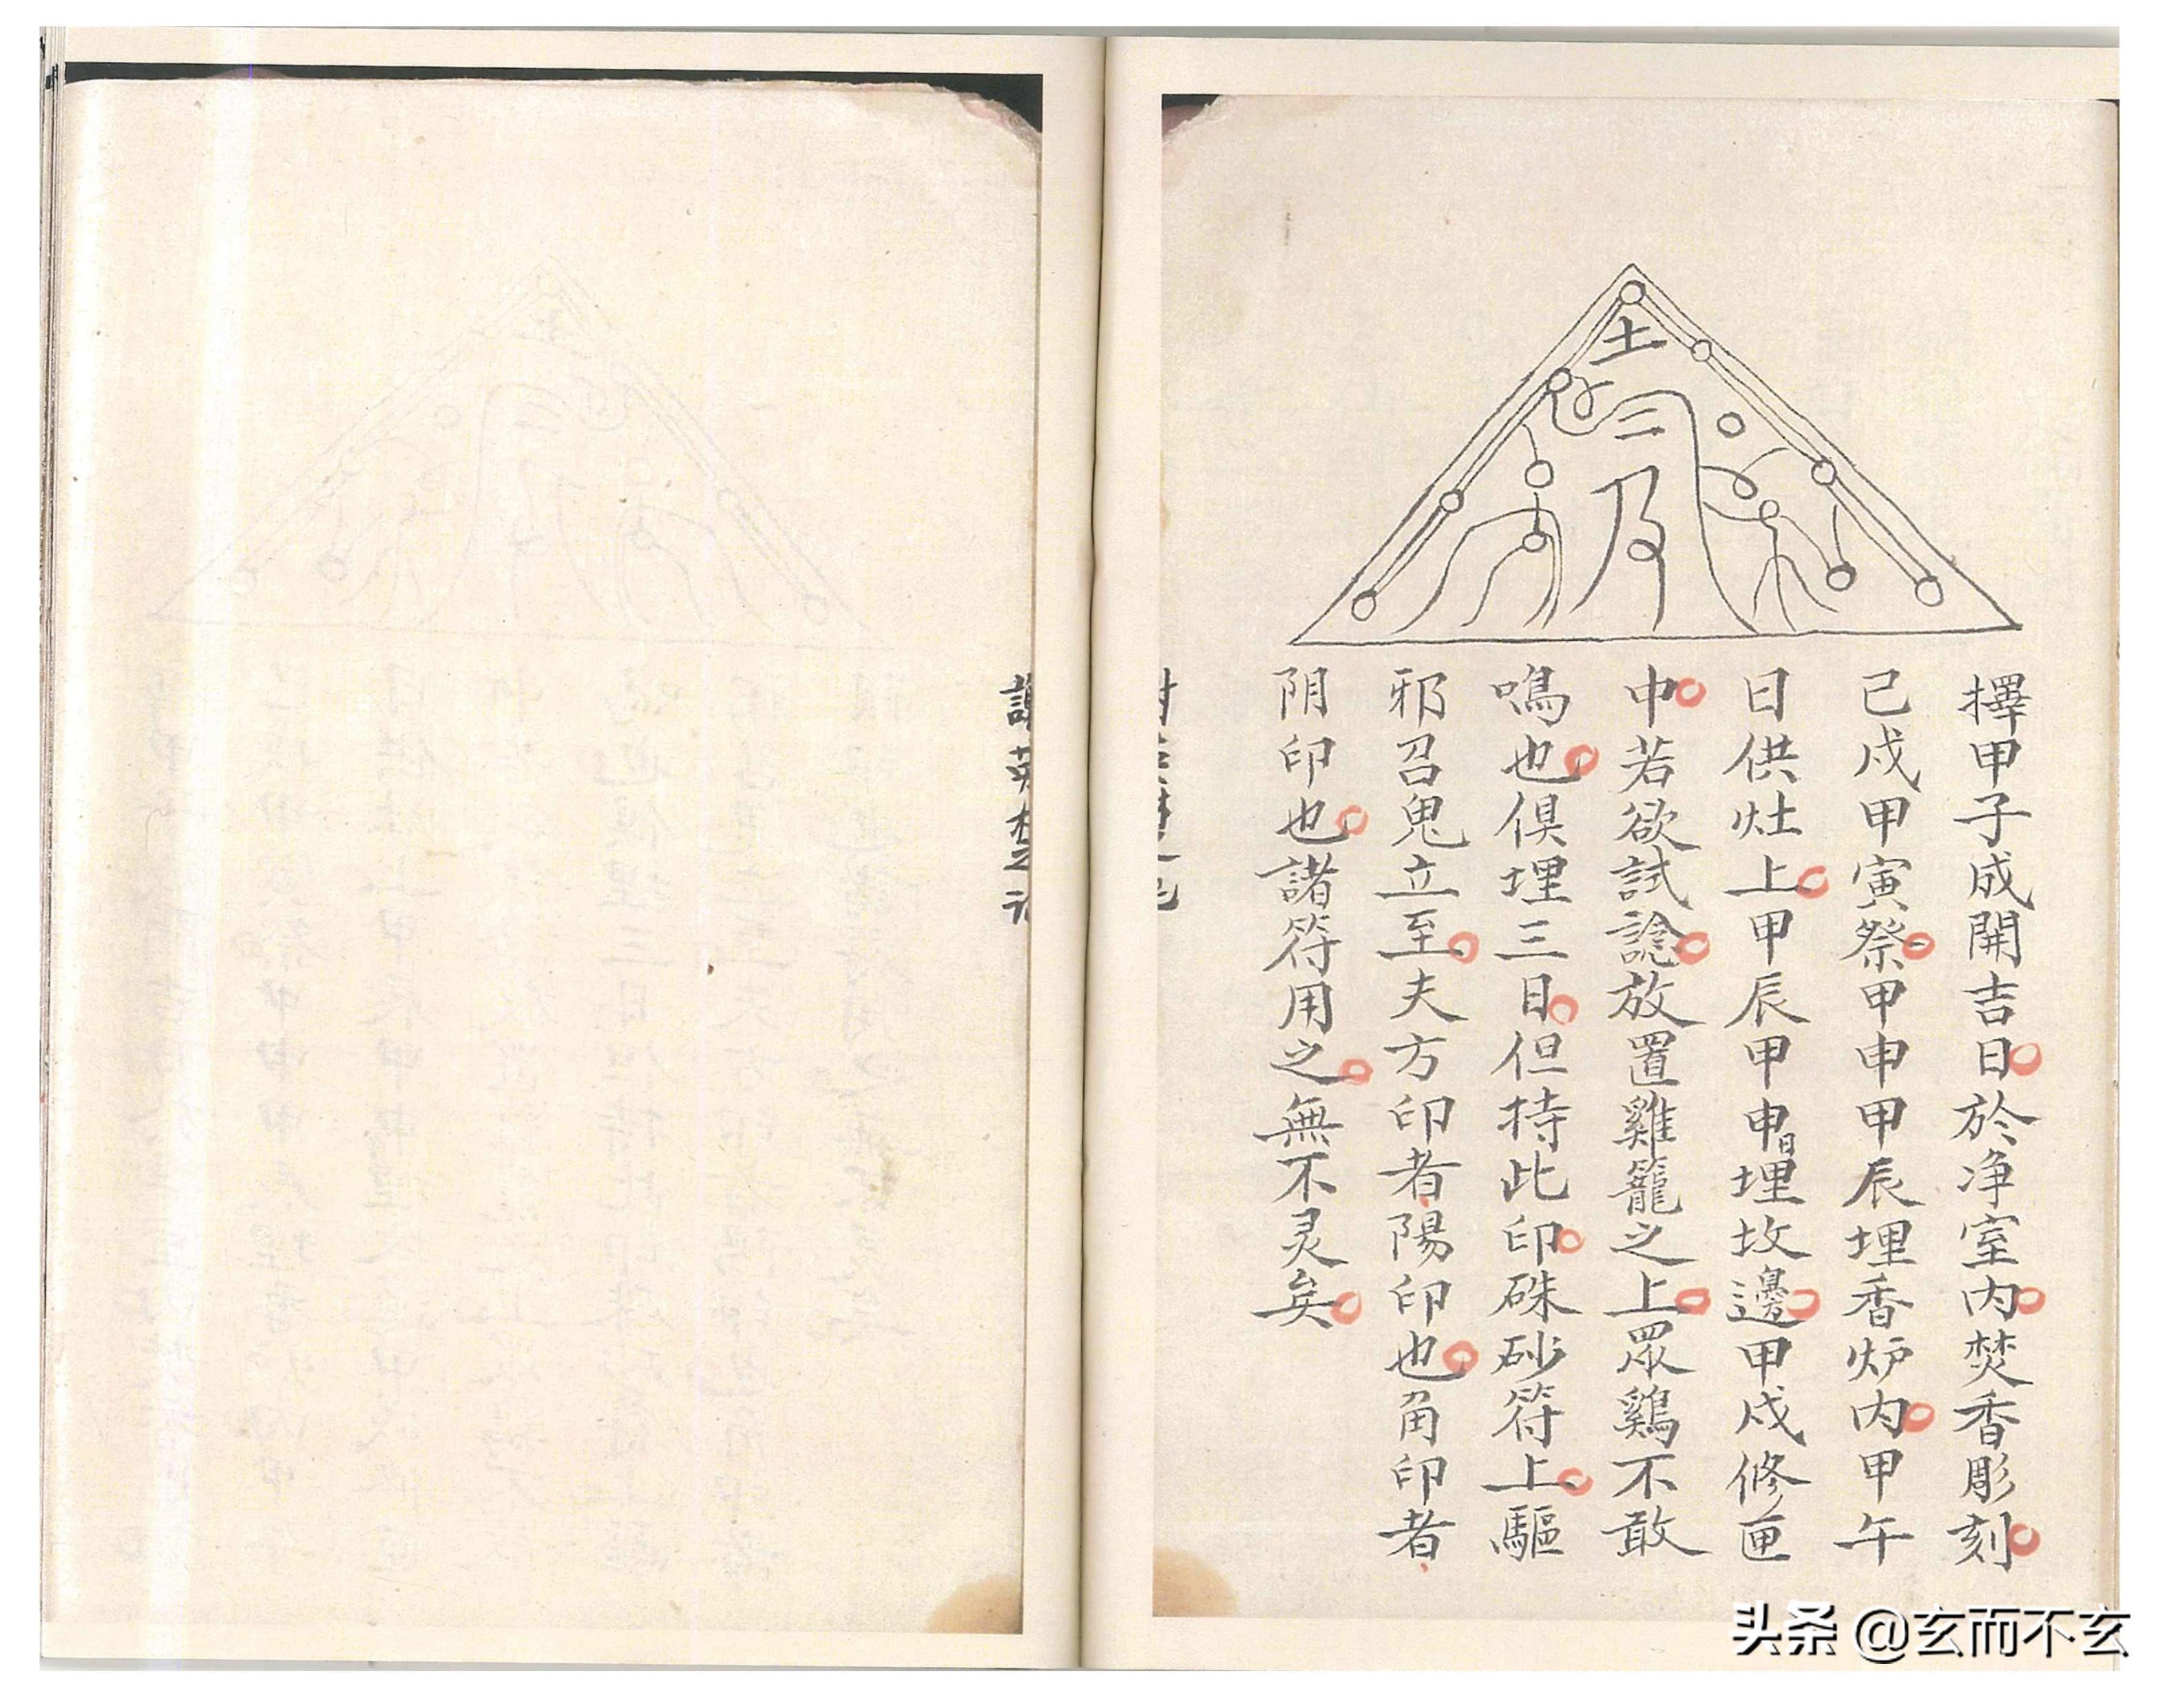 土
擇甲子成開吉日於净室内焚香彫刻
己戌甲寅祭甲申甲辰埋香炉内甲午
日供灶上甲辰甲申日埋坟邊甲戌修匣
中若欲試諗放置雞籠之上眾鷄不敢
鳴也俱埋三日但持此印硃砂符上驅
邪召鬼立至夫方印者陽印也角印者
阴印也諸符用之無不灵矣
头条 @玄而不玄